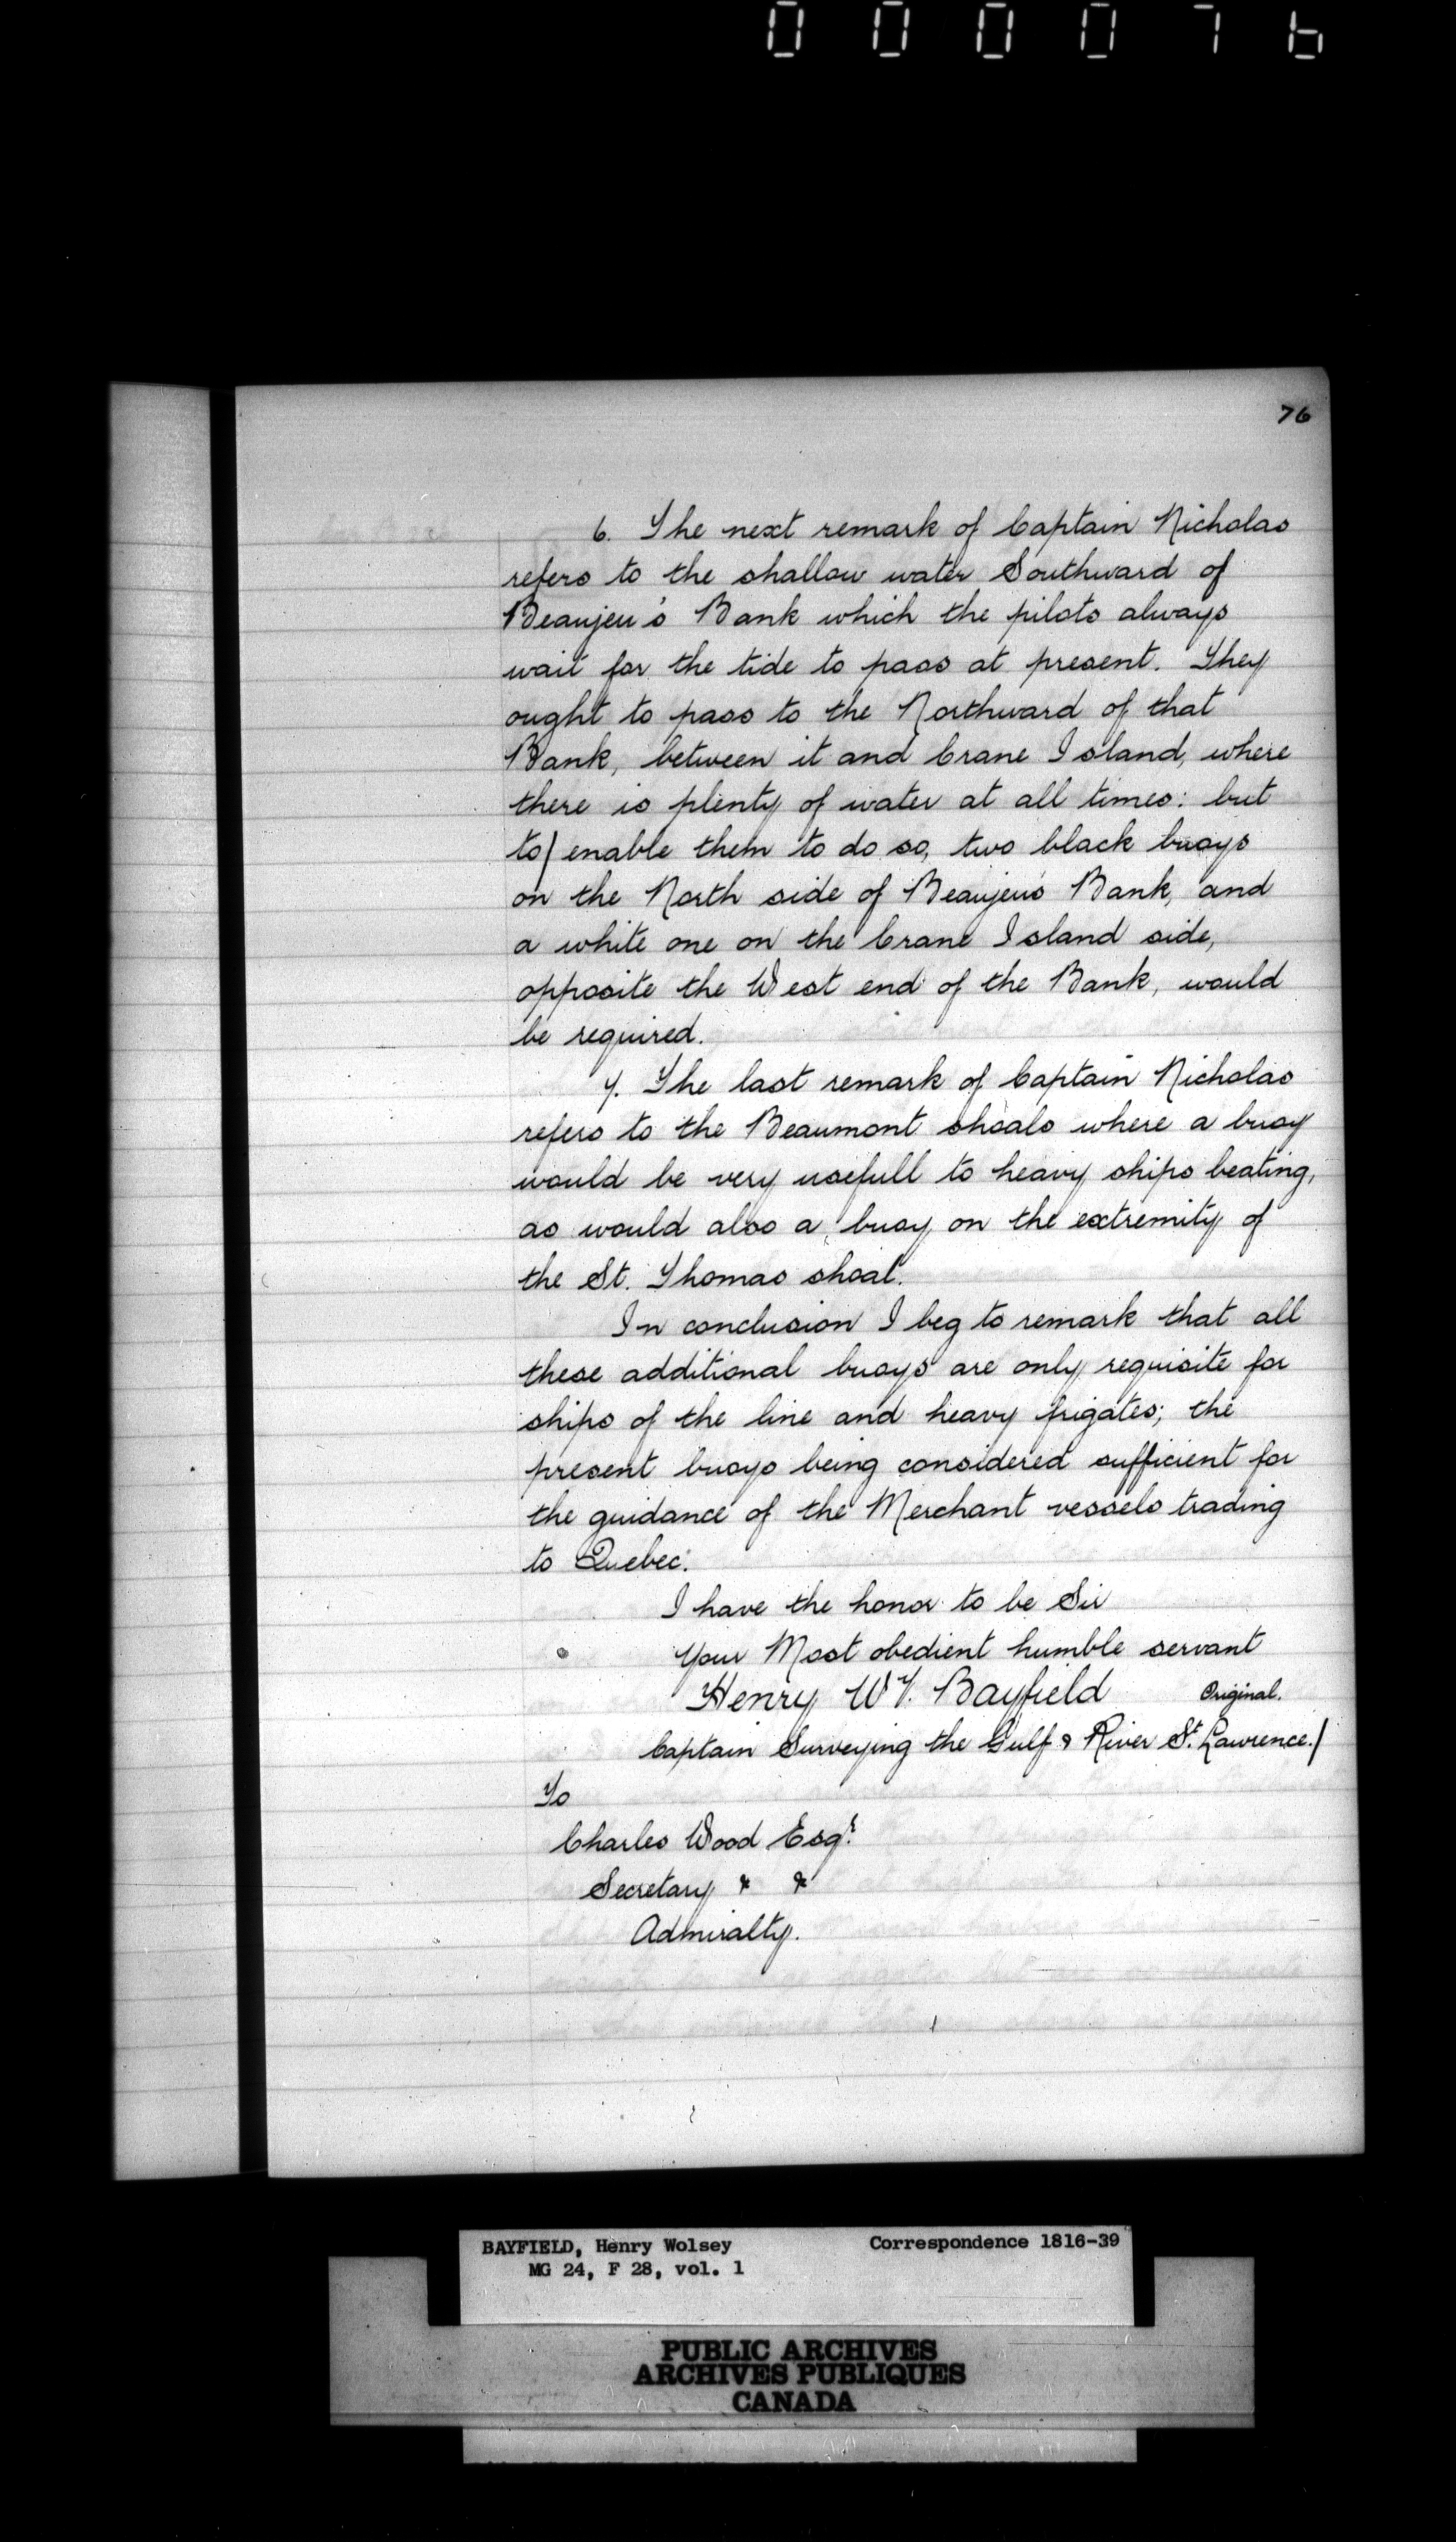 000076
76
6. The next remark of Captain Nicholas
refers to the shallow water Southward of
Beaujeu's Bank which the pilots always
wait for the tide to pass at present. They
ought to pass to the Northward of that
Bank, between it and Crane Island, where
there is plenty of water at all times: but
to/ enable them to do so, two black buoys
on the North side of Beaujeu's Bank, and
a white one on the Crane Island side,
opposite the West end of the Bank, would
be required.
7. The last remark of Captain Nicholas
refers to the Beaumont shoals where a buoy
would be very usefull to heavy ships beating,
as would also a buoy on the extremity of
the St. Thomas shoal.
In conclusion I beg to remark that all
these additional buoys are only requisite for
ships of the line and heavy frigates; the
present buoys being considered sufficient for
the guidance of the Merchant vessels trading
to Quebec.
I have the honor to be Sir
Your Most obedient humble servant
Henry W. Bayfield Original.
Captain Surveying the Gulf & River St. Lawrence./
To
Charles Wood Esqr.
Secretary & &
Admiralty.
BAYFIELD, Henry Wolsey Correspondence 1816-39
MG 24, F 28, vol. 1
PUBLIC ARCHIVES
ARCHIVES PUBLIQUES
CANADA